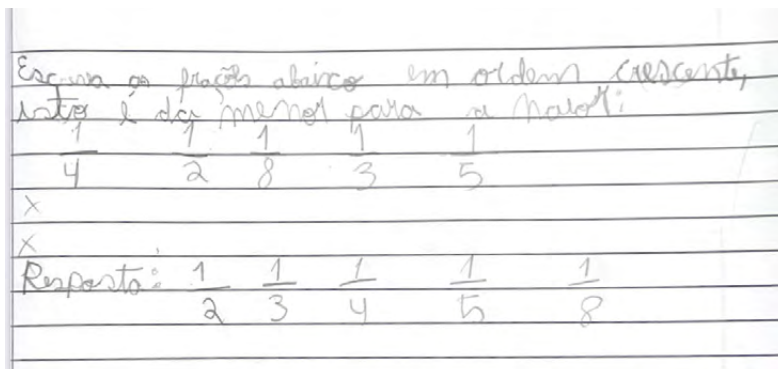 Escreva as frações abaixo em ordem crescente,
isto é da menor para a maior:
1/4 1/2 1/8 1/3 1/5
x
x
Resposta: 1/2 1/3 1/4 1/5 1/8